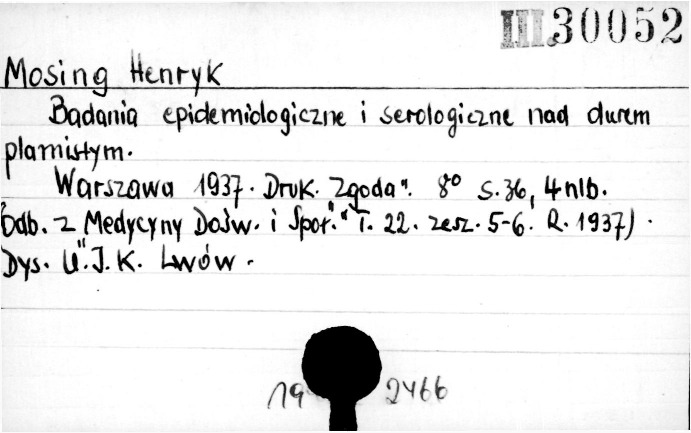 III 30052
Mosing Henryk
Badania epidemiologiczne i serologiczne nad durem
plamistym.
Warszawa 1937. Druk. Zgoda". 8° s. 36, 4 nlb.
Odb. z Medycyny Dośw. i Społ." T. 22. zesz. 5-6. R. 1937).
Dys. U. J. K. Lwów.
19 2466